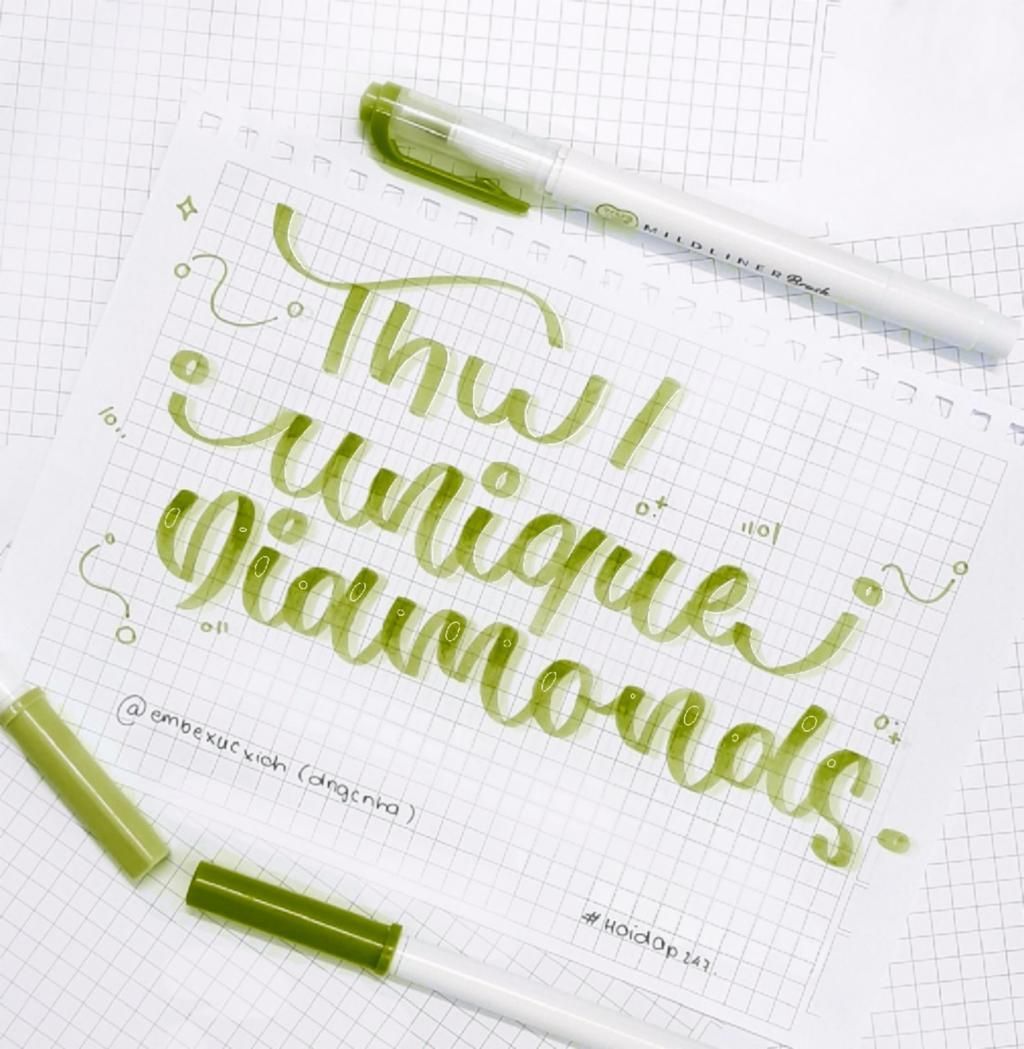 MILDLINER Brush
Thw /
unique
Diamonds.
@embexucxich (dngcnha)
#Hoidap247.